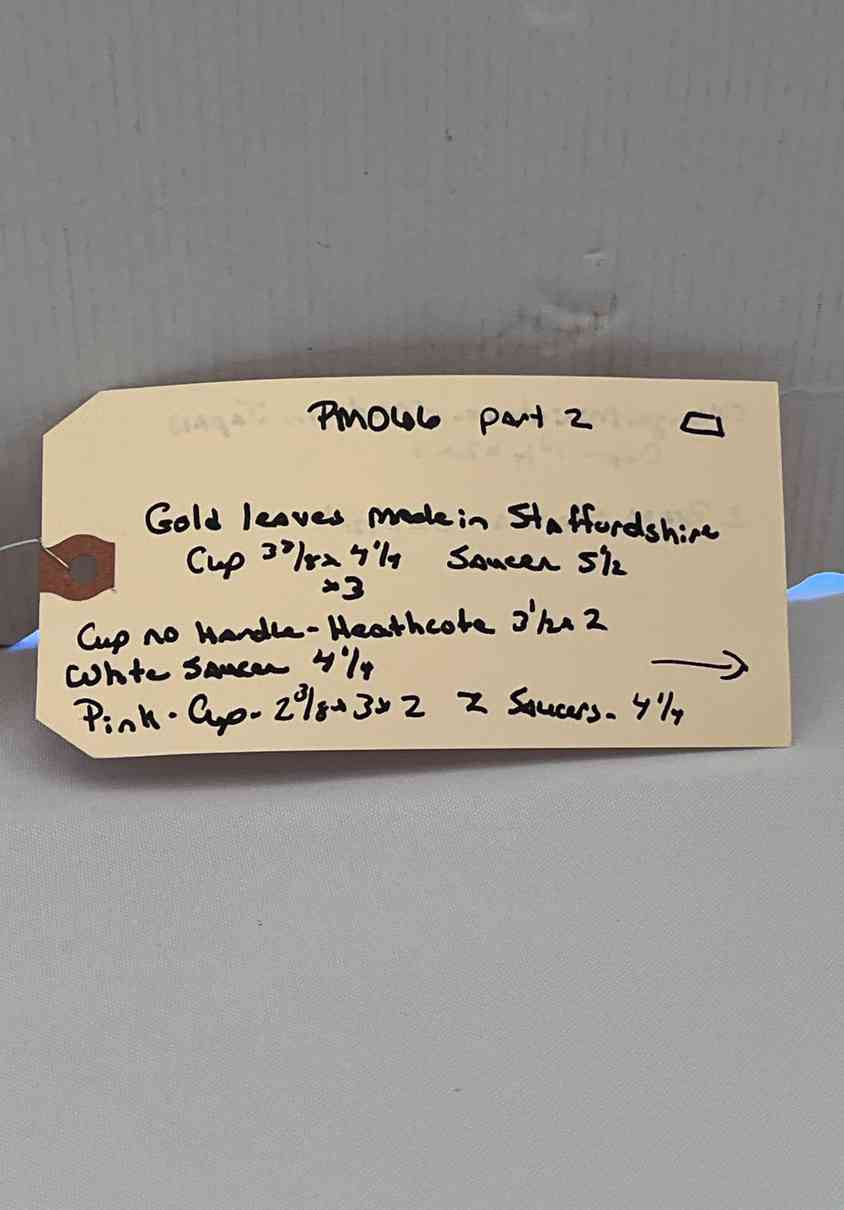 PM066 part 2
Gold leaves made in Staffordshire
Cup 3 7/8 x 4 1/4 Saucer 5 1/2
x3
Cup no Handle - Heathcote 3 1/2 x 2
White Saucer 4 1/4
Pink - Cup - 2 3/8 x 3 x 2 2 Saucers - 4 1/4